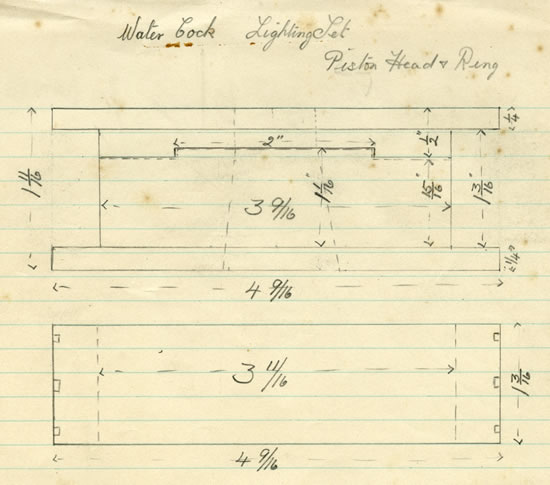 Water Cock Lighting Set
Piston Head & Ring
1/4
2"
1/2"
1 11/16
1 1/16"
15/16"
1 3/16"
3 9/16
1/4"
4 9/16
3 11/16
1 3/16
4 9/16